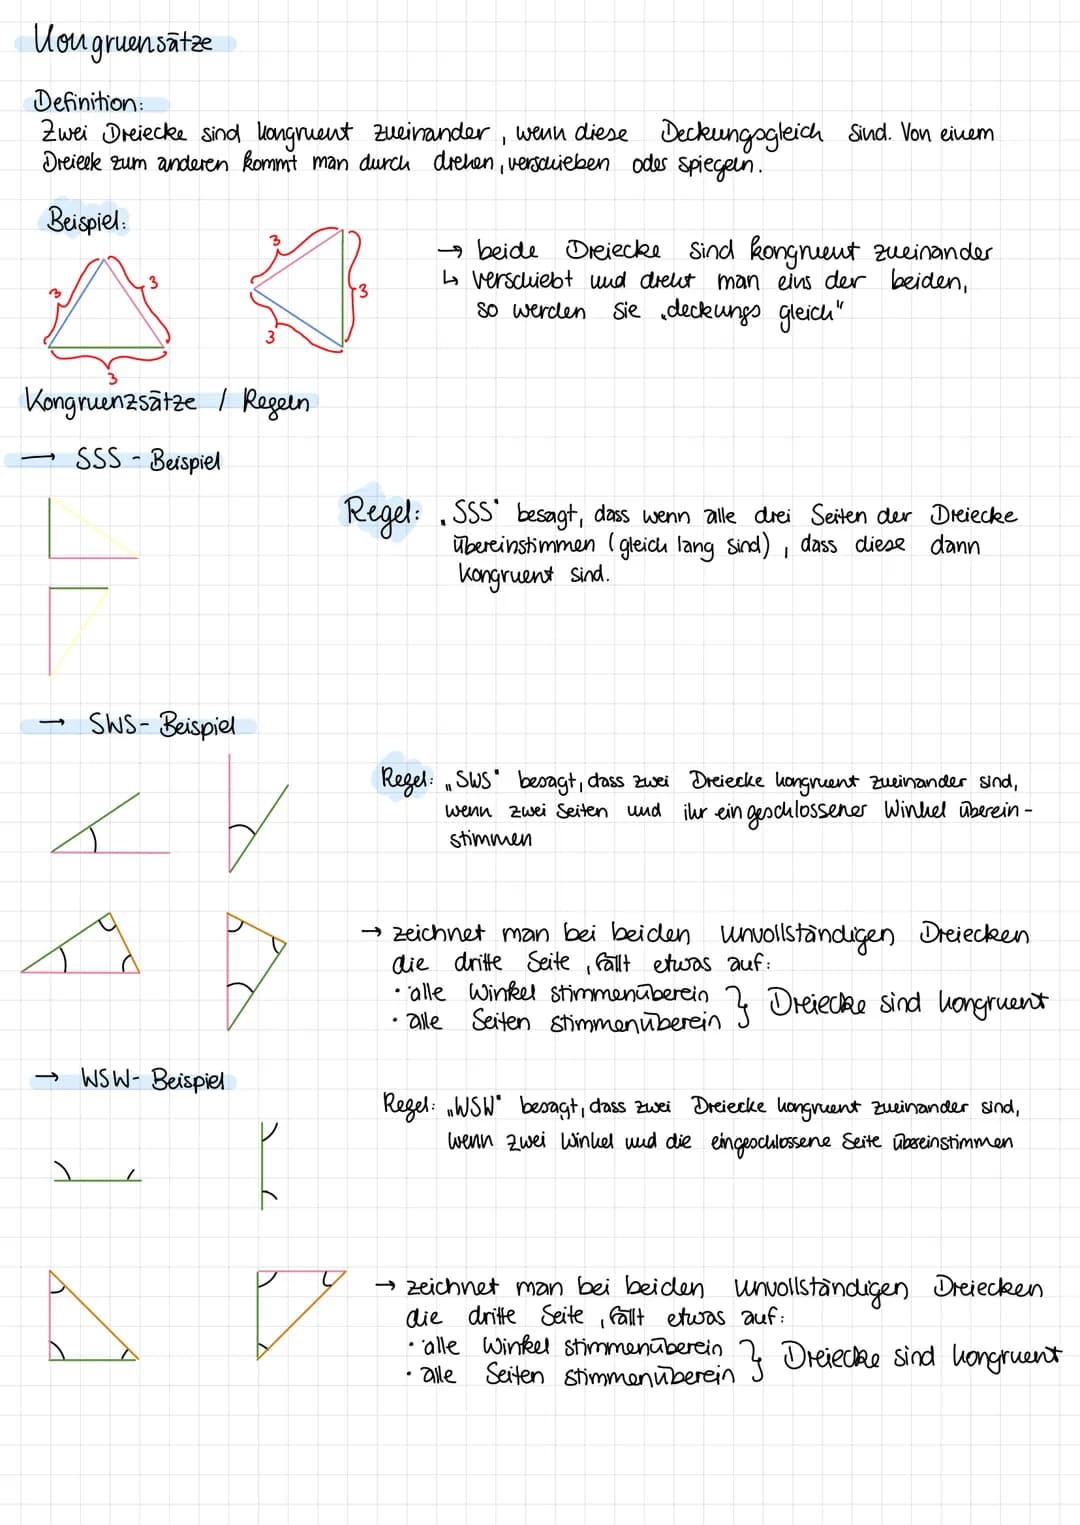 Kongruensätze
Definition:
Zwei Dreiecke sind kongruent zueinander, wenn diese Deckungsgleich sind. Von einem
Dreieck zum anderen kommt man durch drehen, verschieben oder spiegeln.
Beispiel:
3
3
3
3
3
3
→ beide Dreiecke sind kongruent zueinander
↳ verschiebt und dreht man eins der beiden,
so werden sie „deckungs gleich"
Kongruenzsätze / Regeln
→ SSS - Beispiel
Regel: „SSS" besagt, dass wenn alle drei Seiten der Dreiecke
übereinstimmen (gleich lang sind), dass diese dann
kongruent sind.
→ SWS - Beispiel
Regel: „SWS" besagt, dass zwei Dreiecke kongruent zueinander sind,
wenn zwei Seiten und ihr eingeschlossener Winkel überein-
stimmen
→ zeichnet man bei beiden unvollständigen Dreiecken
die dritte Seite, fällt etwas auf:
• alle Winkel stimmen überein } Dreiecke sind kongruent
• alle Seiten stimmen überein
→ WSW - Beispiel
Regel: „WSW" besagt, dass zwei Dreiecke kongruent zueinander sind,
wenn zwei Winkel und die eingeschlossene Seite übereinstimmen
→ zeichnet man bei beiden unvollständigen Dreiecken
die dritte Seite, fällt etwas auf:
• alle Winkel stimmen überein } Dreiecke sind kongruent
• alle Seiten stimmen überein